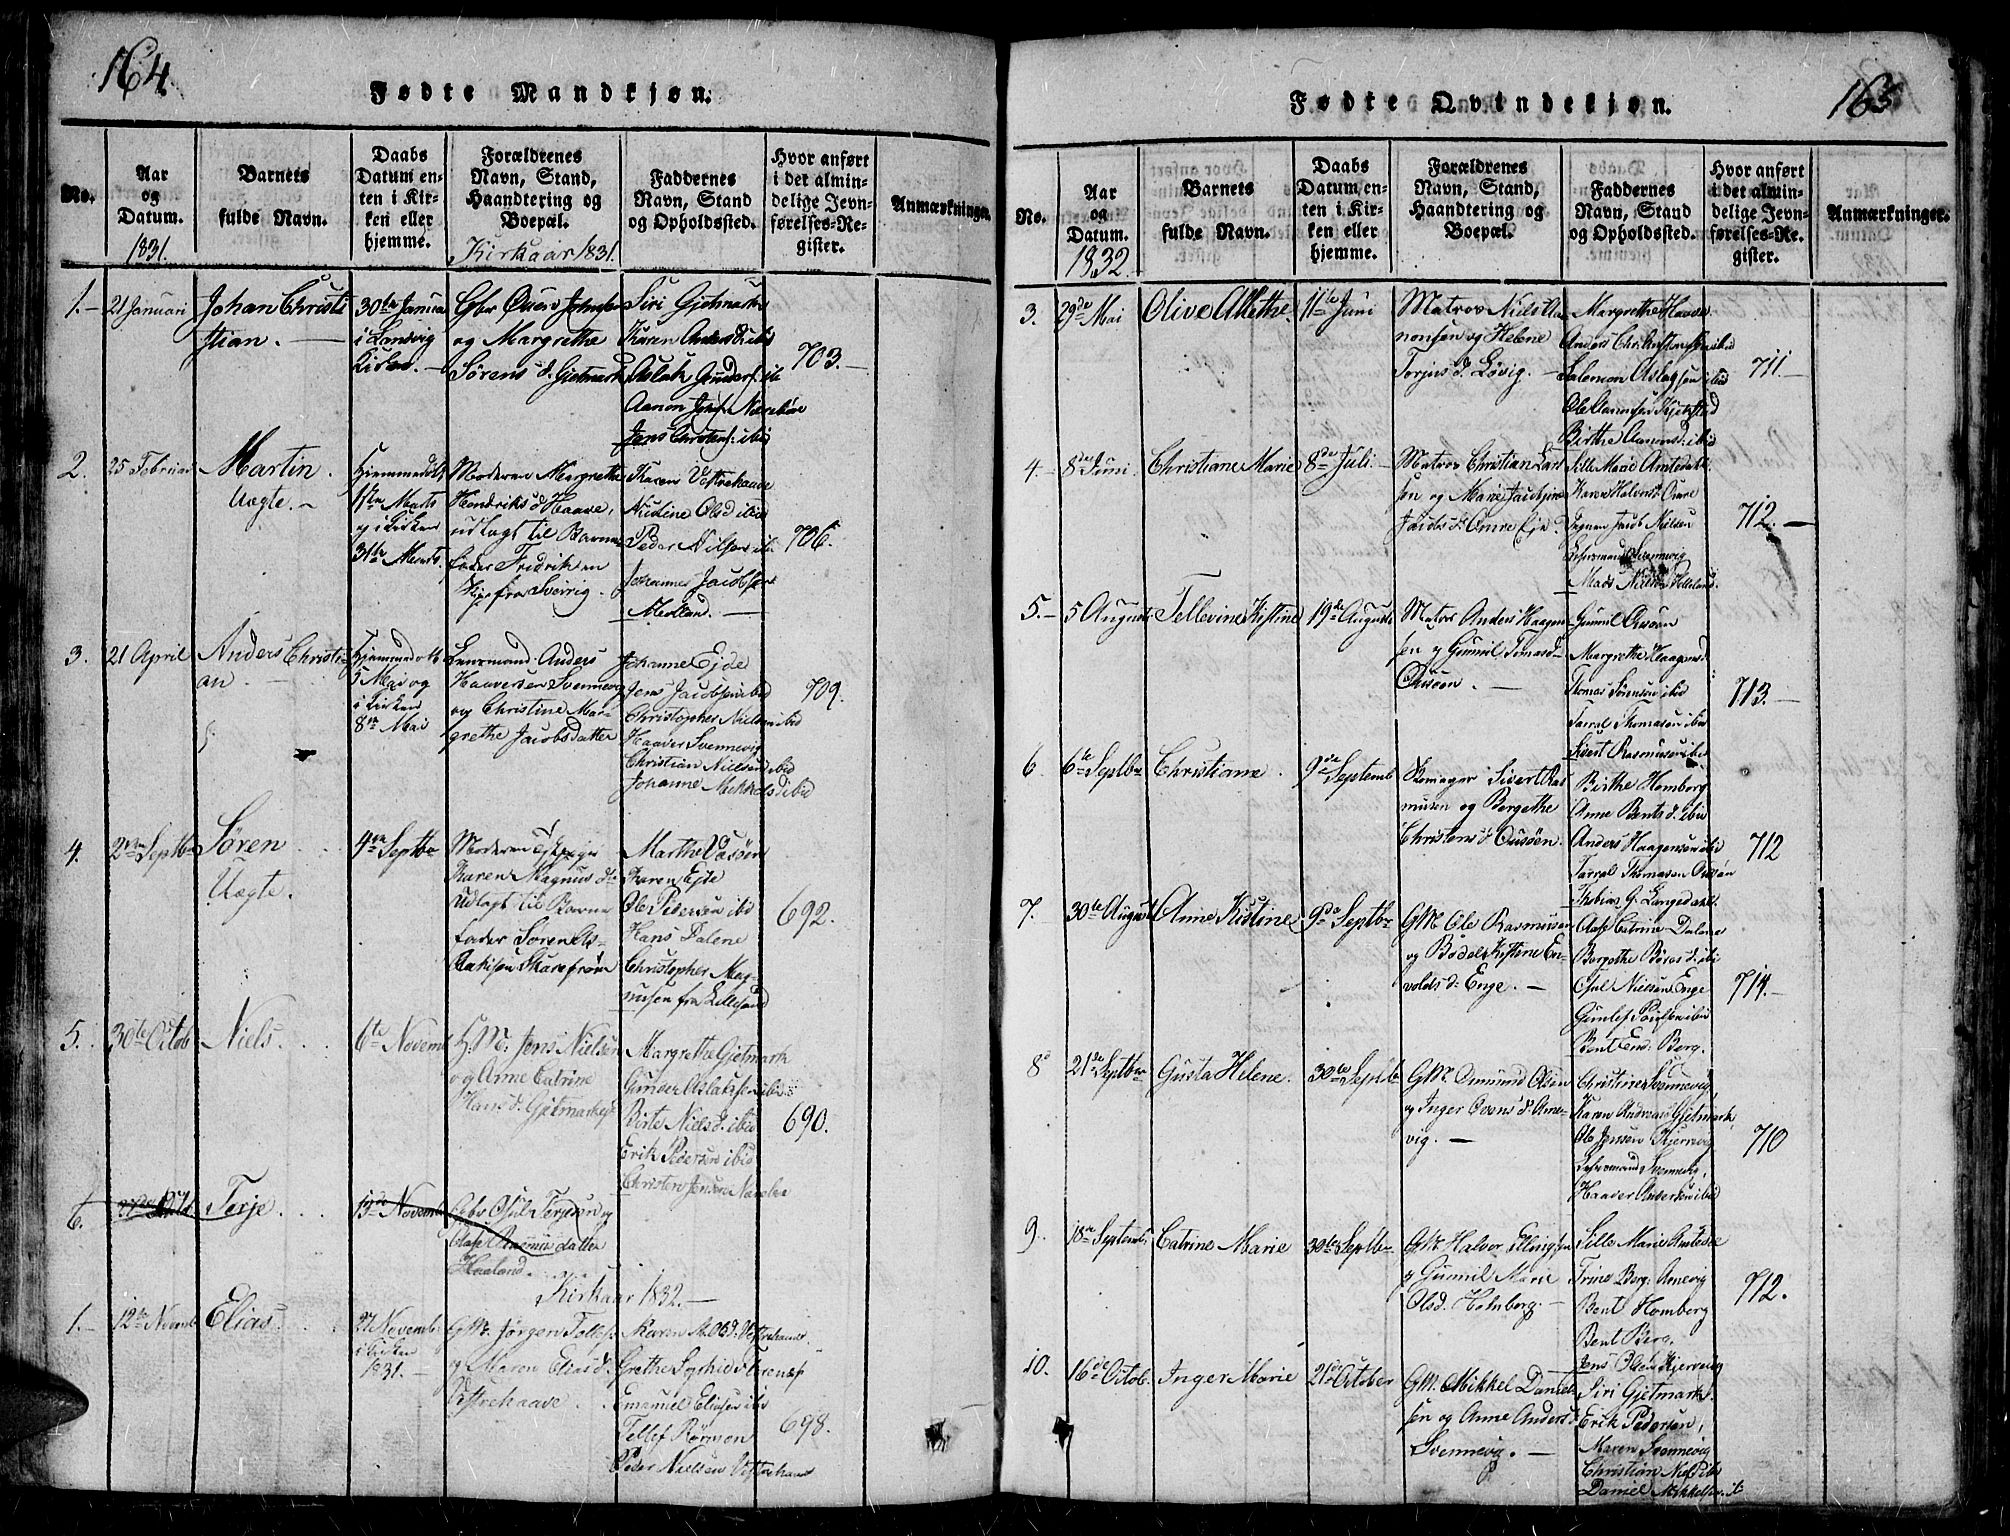 164.
Fødte Mandkjøn.
No.
Aar
og
Datum.
1831.
Barnets
fulde Navn.
Daabs
Datum en-
ten i Kir-
ken eller
hjemme.
Forældrenes
Navn, Stand,
Haandtering og
Boepæl.
Kirkaar 1831.
Faddernes
Navn, Stand
og Opholdssted.
Hvor anført
i det almin-
delige Jevn-
førelses-Re-
gister.
Anmærkninger.
1.
21 Januari
Johan Christi
stian.
30te Janua
i Landvig
Kirke.
og Margrethe
Sørens d. Gjetmark
Siri Gjetmark
Karen Anders d ibid
Aslak Gunders. ib
Aanon
Jens Christens. ibid
703.
2.
25 Februar
Martin.
Uægte.
Hjemmedøbt
1ste Marts
og i Kirken
31te Marts
Moderen Margrethe
Hendriks d Haave,
udlagt til Barne
fader Fridrik en
fra Sverrig.
Karen Vestrehaave
Nicoline Olsd ibid
Peder Nilsen ib.
Johannes Jacobsen
Molland.
706.
3.
21 April
Anders Christi
an.
Hjemmedøbt
5 Mai og
i Kirken
8de Mai
Lensmand Anders
Haaversen Svennevig
og Christine Mar-
grethe Jacobsdatter
Johanne Ejde
Jens Jacobsen ibid
Christopher Nielsen ibid
Haaver Svennevig
Christian Nielsen ibid
Johanne Mikkelsd ibid
709.
4.
2den Septbr
Søren
Uægte.
4de Septbr
Moderen
Karen Magnus d.
Udlagt til Barne
fader Søren
Marthe Vosøen
Karen Ejde
Ole Pedersen ibid
Hans Dalene
Christopher Mag-
nusen fra Lillesand
692.
5.
30te Octob
Niels.
6te Novemb
G.M. Jens Nielsen
og Anne Catrine
Hans d. Gjetmark
Margrethe Gjetmark
Gunder Aslaksen ibid
Birte Niels d. ibid
Erik Pedersen ibid
Christen Jensen
690.
6.
Terje.
13de Novemb
Osul Terjesen og
Rasmus datter
Haaland.
Kirkaar 1832.
1.
12te Novemb
Elias.
27 Novemb.
i Kirken
1831.
GM. Jørgen Tellefs.
og Maren Elias d.
Vestrehaave.
Karen M. Olsd. Vestrehaave
Grethe Sophie
Emanuel Eliasen ibid
Tellef Rørmon
Peder Nielsen Vestrehaave
698.
163
Fødte Qvindekjøn.
No.
Aar
og
Datum.
1832
Barnets
fulde Navn.
Daabs
Datum, en-
ten i Kir-
ken eller
hjemme.
Forældrenes
Navn, Stand,
Haandtering og
Boepæl.
Faddernes
Navn, Stand,
og Opholdssted.
Hvor anført
i det almin-
delige Jevn-
førelses-Re-
gister.
Anmærkninger.
3.
29de Mai
Olive Alethe.
11te Juni
Matros Niels Aa
nonsen og Helene
Torjus d. Løvig.
Margrethe Haave
Salemon Aslagsen ibid
Birthe Aanons d. ibid
711.
4.
8de Juni
Christiane Marie
8de Juli
Matros Christian Lar
sen og Marie
Jacobs d. Omre Eje
Sille Marie Amtedahl
Karen Halvors d. Omre
Jacob Nielsen
Lehnsmand Svennevig
712.
5.
5 August
Tellevine Kistine
19de August
Matros Anders Haagen-
sen og Gunnil Tomas d
Ousøen.
Gunnil Ousøen
Margrethe Haagens d
Thomas Sørensen ibid
Tarral Thomasen ibid
Sivert Rasmusen ibid
713.
6
6te Septbr
Christiane.
9de Septemb
Skomager Sivert Ras
musen og Bergethe
Christens d. Ousøen.
Birthe Homborg
Anne Bents d. ibid
Anders Haagensen ibid
Tarral Thomasen Ousøen
Thobias G. Langedahl.
712
7.
30te August
Anne Kistine
9de Septbr
GM Ole Rasmusen
og Bodel Kistine En-
volds d: Enge.
Catrine Dalene
Bergethe
Osul Nielsen Enge
Gunlef Poulsen ibid
Bent End: Berg.
714.
8
21de Septbr
Gusta Helene.
30te Septb
GM. Omund Olsen
og Inger Ovens d. Arne-
vig.
Christine Svennevig
Karen Andreas d Gjetmark
Ole Jensen Kjerrevig
Lehnsmand Svennevig,
Haaver Andersen ibid
710
9.
18de Septemb.
Catrine Marie
30te Septbr
GM Halvor Ellingsen
og Gunnil Marie
Olsd. Homborg.
Sille Marie
Trine Berg: Arnevig
Bent Homborg
Bent Berg.
Jens Olsen Kjerrevig
712.
10.
16de Octob.
Inger Marie
21de October
GM. Mikkel Daniel
sen og Anne Anders d
Svennevig.
Siri Gjetmark.
Erik Pedersen,
Maren Svennevig
Christian
Daniel Mikkelsen ib